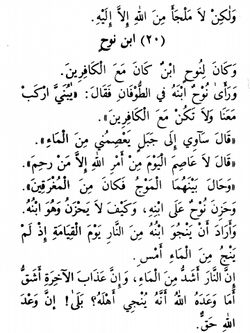 وَلٰكِنْ لاَ مَلْجَأَ مِنَ اللهِ إِلاَّ إِلَيْهِ.
(٢٠) ابن نوح
وَكَانَ لِنُوحٍ ابْنٌ كَانَ مَعَ الْكَافِرِينَ.
وَرَأَى نُوْحٌ ابْنَهُ فِي الطُّوْفَانِ فَقَالَ: «يٰبُنَيَّ ارْكَبْ
مَعَنَا وَلاَ تَكُنْ مَعَ الْكَافِرِينَ».
«قَالَ سَآوِي إِلَى جَبَلٍ يَعْصِمُنِي مِنَ الْمَاءِ».
«قَالَ لاَ عَاصِمَ الْيَوْمَ مِنْ أَمْرِ اللهِ إِلاَّ مَنْ رَحِمَ».
«وَحَالَ بَيْنَهُمَا الْمَوْجُ فَكَانَ مِنَ الْمُغْرَقِينَ».
وَحَزِنَ نُوْحٌ عَلَى ابْنِهِ، وَكَيْفَ لاَ يَحْزَنُ وَهُوَ ابْنُهُ.
وَأَرَادَ أَنْ يَنْجُوَ ابْنُهُ مِنَ النَّارِ يَوْمَ الْقِيَامَةِ إِذْ لَمْ
يَنْجُ مِنَ الْمَاءِ أَمْسِ.
إِنَّ النَّارَ أَشَدُّ مِنَ الْمَاءِ، وَإِنَّ عَذَابَ الآخِرَةِ أَشَقُّ
أَمَا وَعَدَهُ اللهُ أَنَّهُ يُنْجِي أَهْلَهُ؟ بَلَى! إِنَّ وَعْدَ
اللهِ حَقٌّ